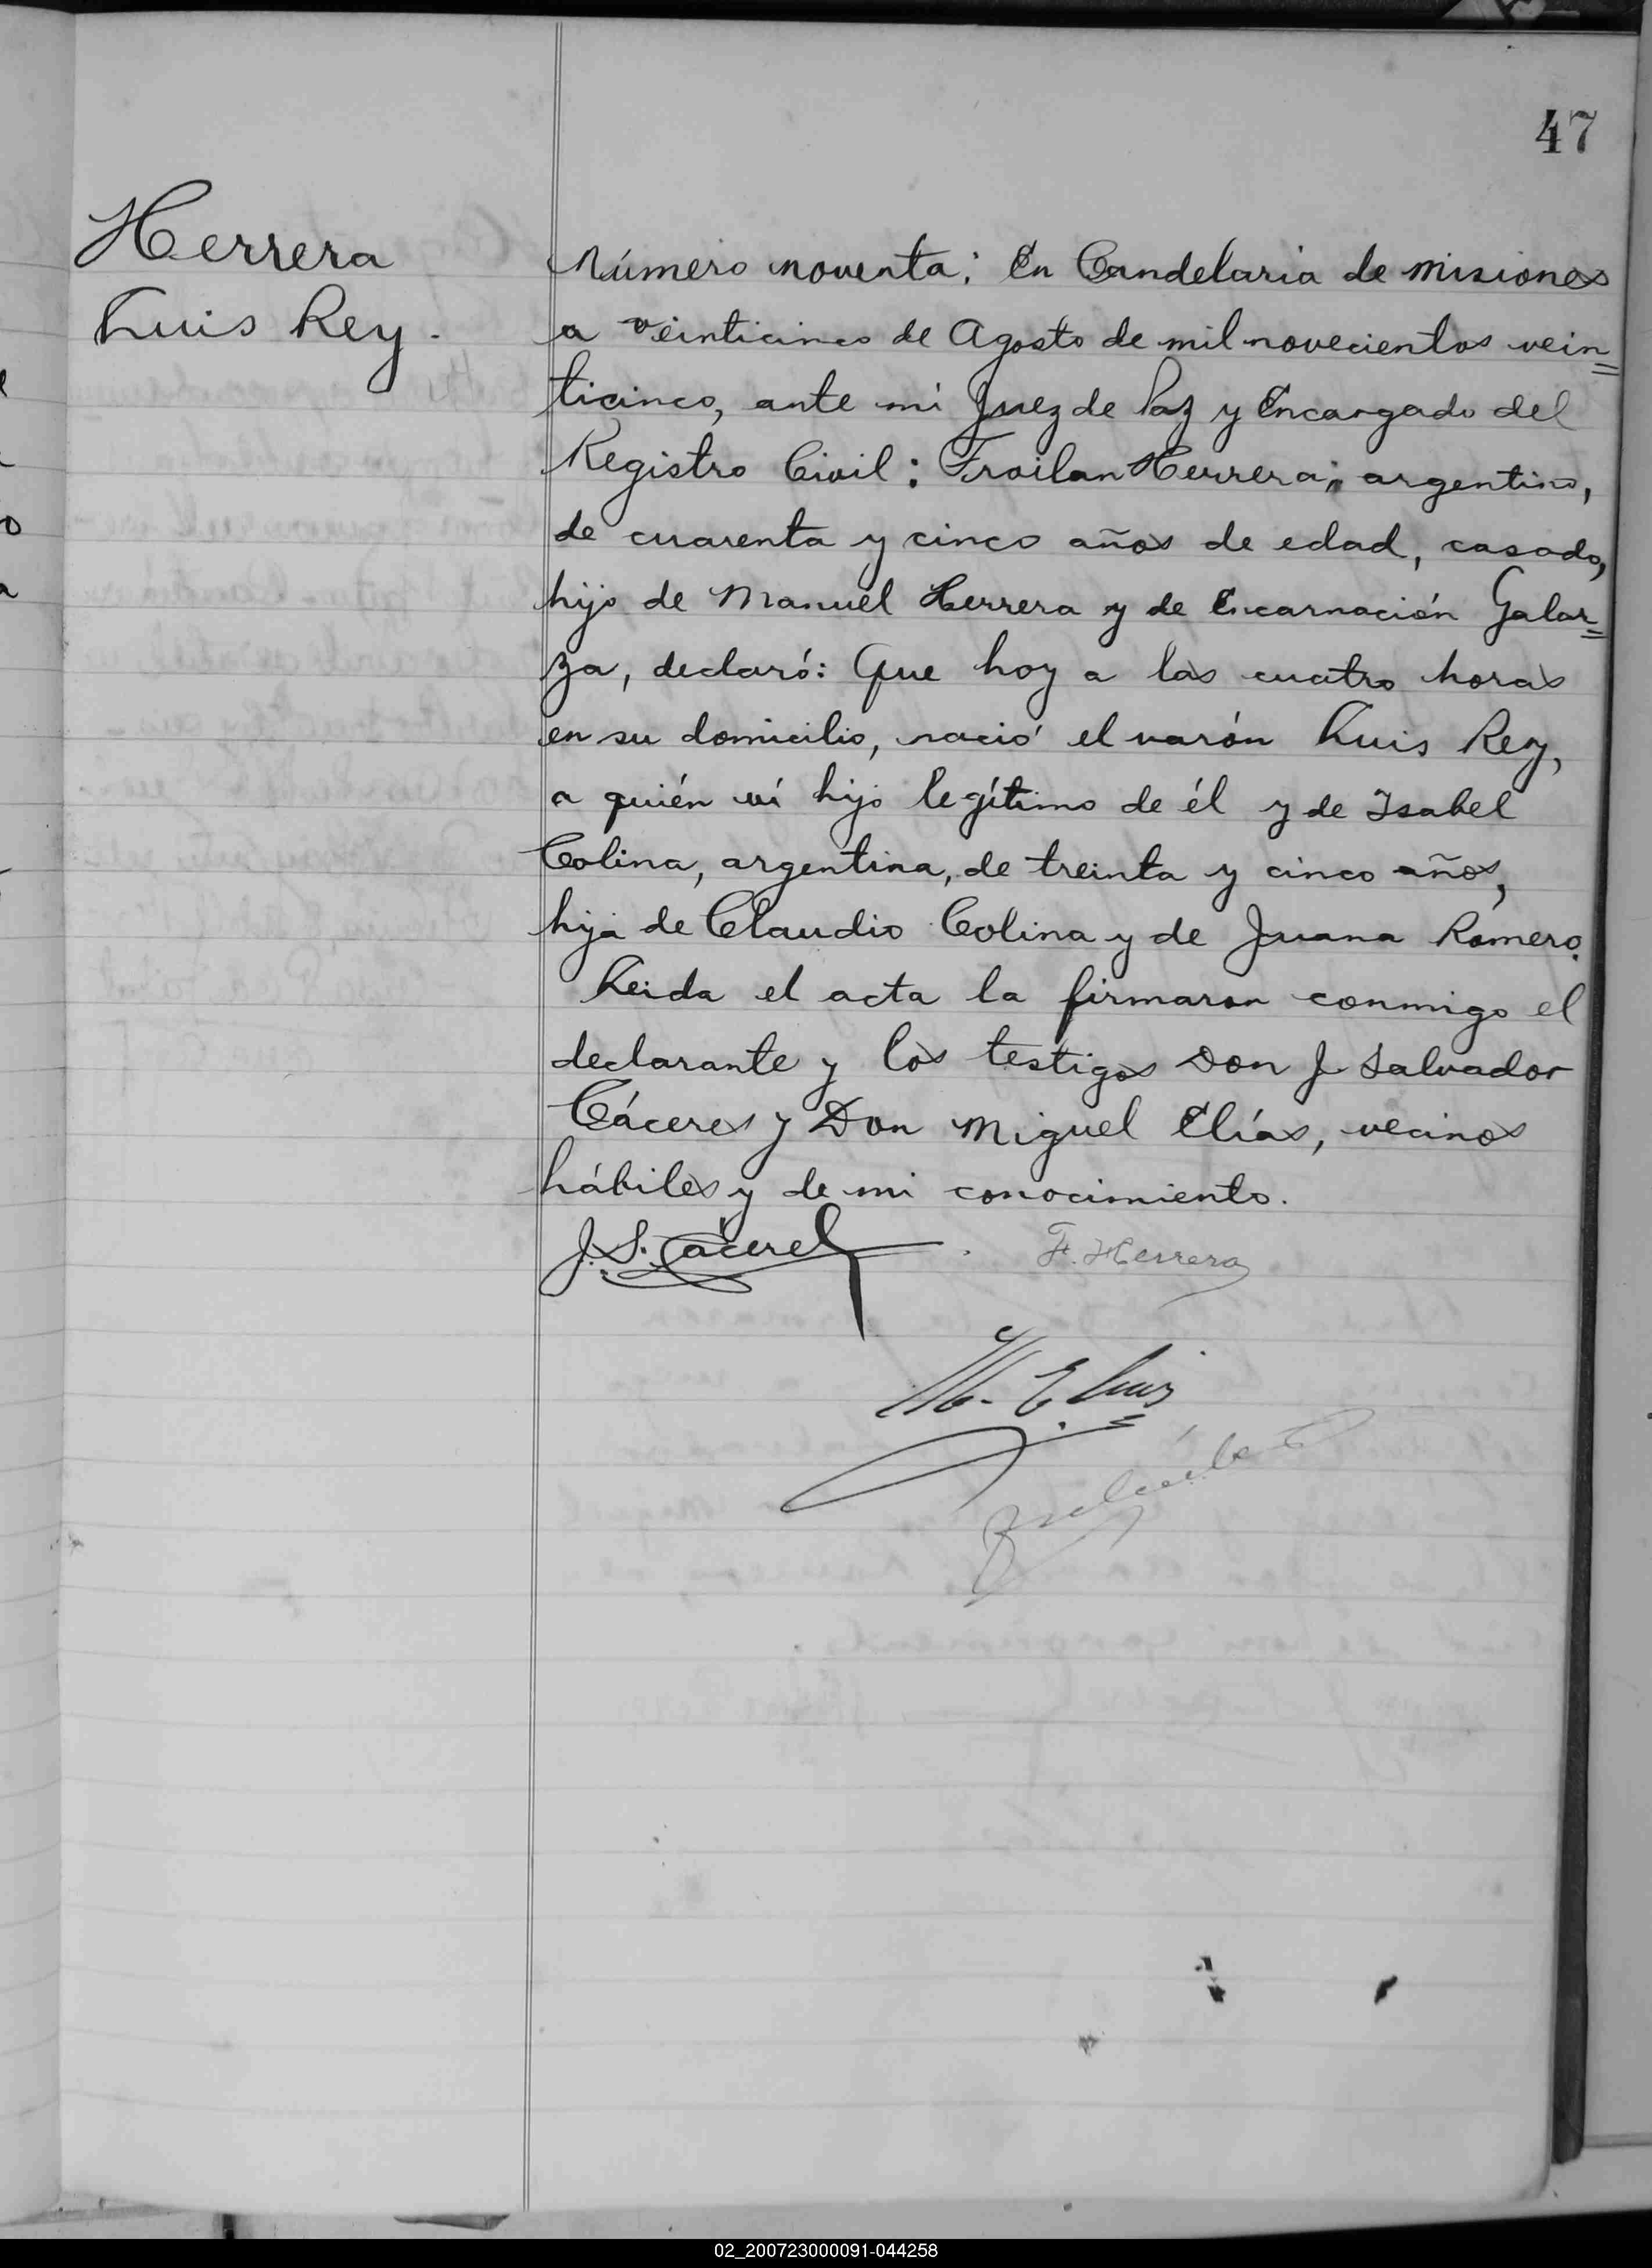 47
Herrera
Luis Rey.
Número noventa: En Candelaria de Misiones
a veinticinco de Agosto de mil novecientos vein=
ticinco, ante mi Juez de Paz y Encargado del
Registro Civil: Froilan Herrera, argentino,
de cuarenta y cinco años de edad, casado,
hijo de Manuel Herrera y de Encarnación Galar=
za, declaró: Que hoy a las cuatro horas
en su domicilio, nació el varón Luis Rey,
a quién ví hijo legítimo de él y de Isabel
Colina, argentina, de treinta y cinco años,
hija de Claudio Colina y de Juana Romero.
Leida el acta la firmaron conmigo el
declarante y los testigos Don J. Salvador
Cáceres y Don Miguel Elías, vecinos
hábiles y de mi conocimiento.
J. S. Cáceres
F. Herrera
M. Elias
02_200723000091-044258